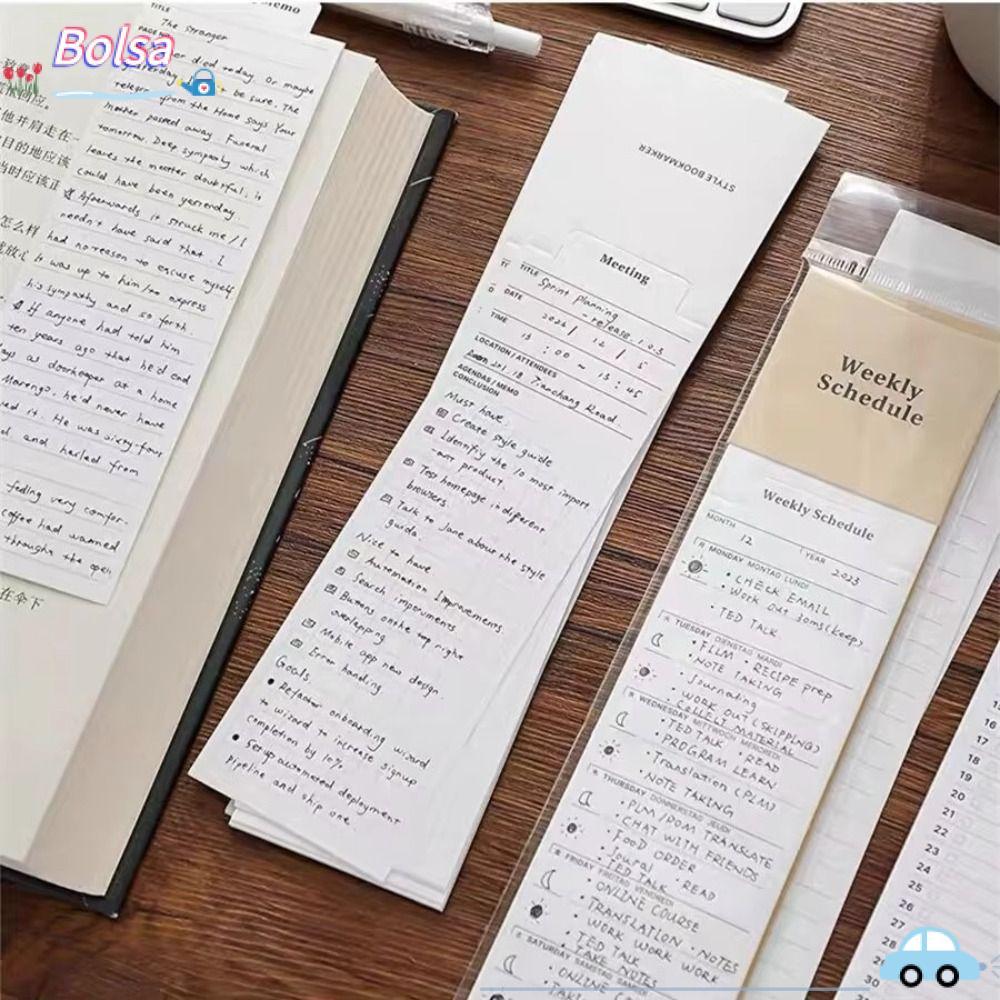 Bolsa
Memo
TITLE
The Stranger
PAGE
died today. or maybe
yesterday be sure. The
telegram from the Home says Your
mother passed away Funeral
tomorrow. Deep sympathy which
leaves the matter doubtful; it
could have been yesterday.
Afterwards it struck me / I
needn't have said that. I
had no reason to excuse myself
It was up to him / to express
his sympathy and so forth.
If anyone had told him
ten years ago that he'd end
as doorkeeper at a home
Marengo, he'd never have
it. He was sixty-four
and hailed from
feeling very comfor-
coffee had warmed
throughs the open
他并肩走在一
的目的地应该
当时应该正
怎么样
就放心
在伞下
STYLE BOOKMARKER
Meeting
TITLE Sprint Planning
- release 1.0.3
DATE 2026 / 12 / 5
TIME 13 : 00 ~ 13 : 45
LOCATION / ATTENDEES
201, 18 Tianchang Road.
AGENDAS / MEMO
CONCLUSION
Must have.
Create style guide
Identify the 10 most import
-ant product.
Test homepage in different
browsers.
Talk to Jane about the style
guida.
Nice to have
Automation Improvements
Search improvements
Buttons on the top right
overlapping
Mobile app new design
Error handing
Goals
• Refactor onboarding wizard
to wizard to increase signup
completion by 10%.
• Set up automated deployment
pipeline and ship one.
Weekly
Schedule
Weekly Schedule
MONTH 12 YEAR 2023
MONDAY MONTAG LUNDI
• CHECK EMAIL
• Work out 30ms (keep)
• TED TALK
TUESDAY DIENSTAG MARDI
• FILM • RECIPE prep
• NOTE TAKING
• Journaling
• WORK OUT (SKIPPING)
• COLLELT MATERIAL
WEDNESDAY MITTWOCH MERCREDI
• TED TALK • READ
• PROGRAM LEARN
• Translation (PLM)
• NOTE TAKING
THURSDAY DONNERSTAG JEUDI
• PLM/DOM TRANSLATE
• CHAT WITH FRIENDS
• FOOD ORDER
• Joural
• TED TALK • READ
FRIDAY FREITAG VENDREDI
• ONLINE COURSE
• TRANSLATION • NOTES
• WORK WORK WORK
• TED TALK
• TAKE NOTES
SATURDAY SAMSTAG SAMEDI
• ONLINE
15
16
17
18
19
20
21
22
23
24
25
26
27
28
29